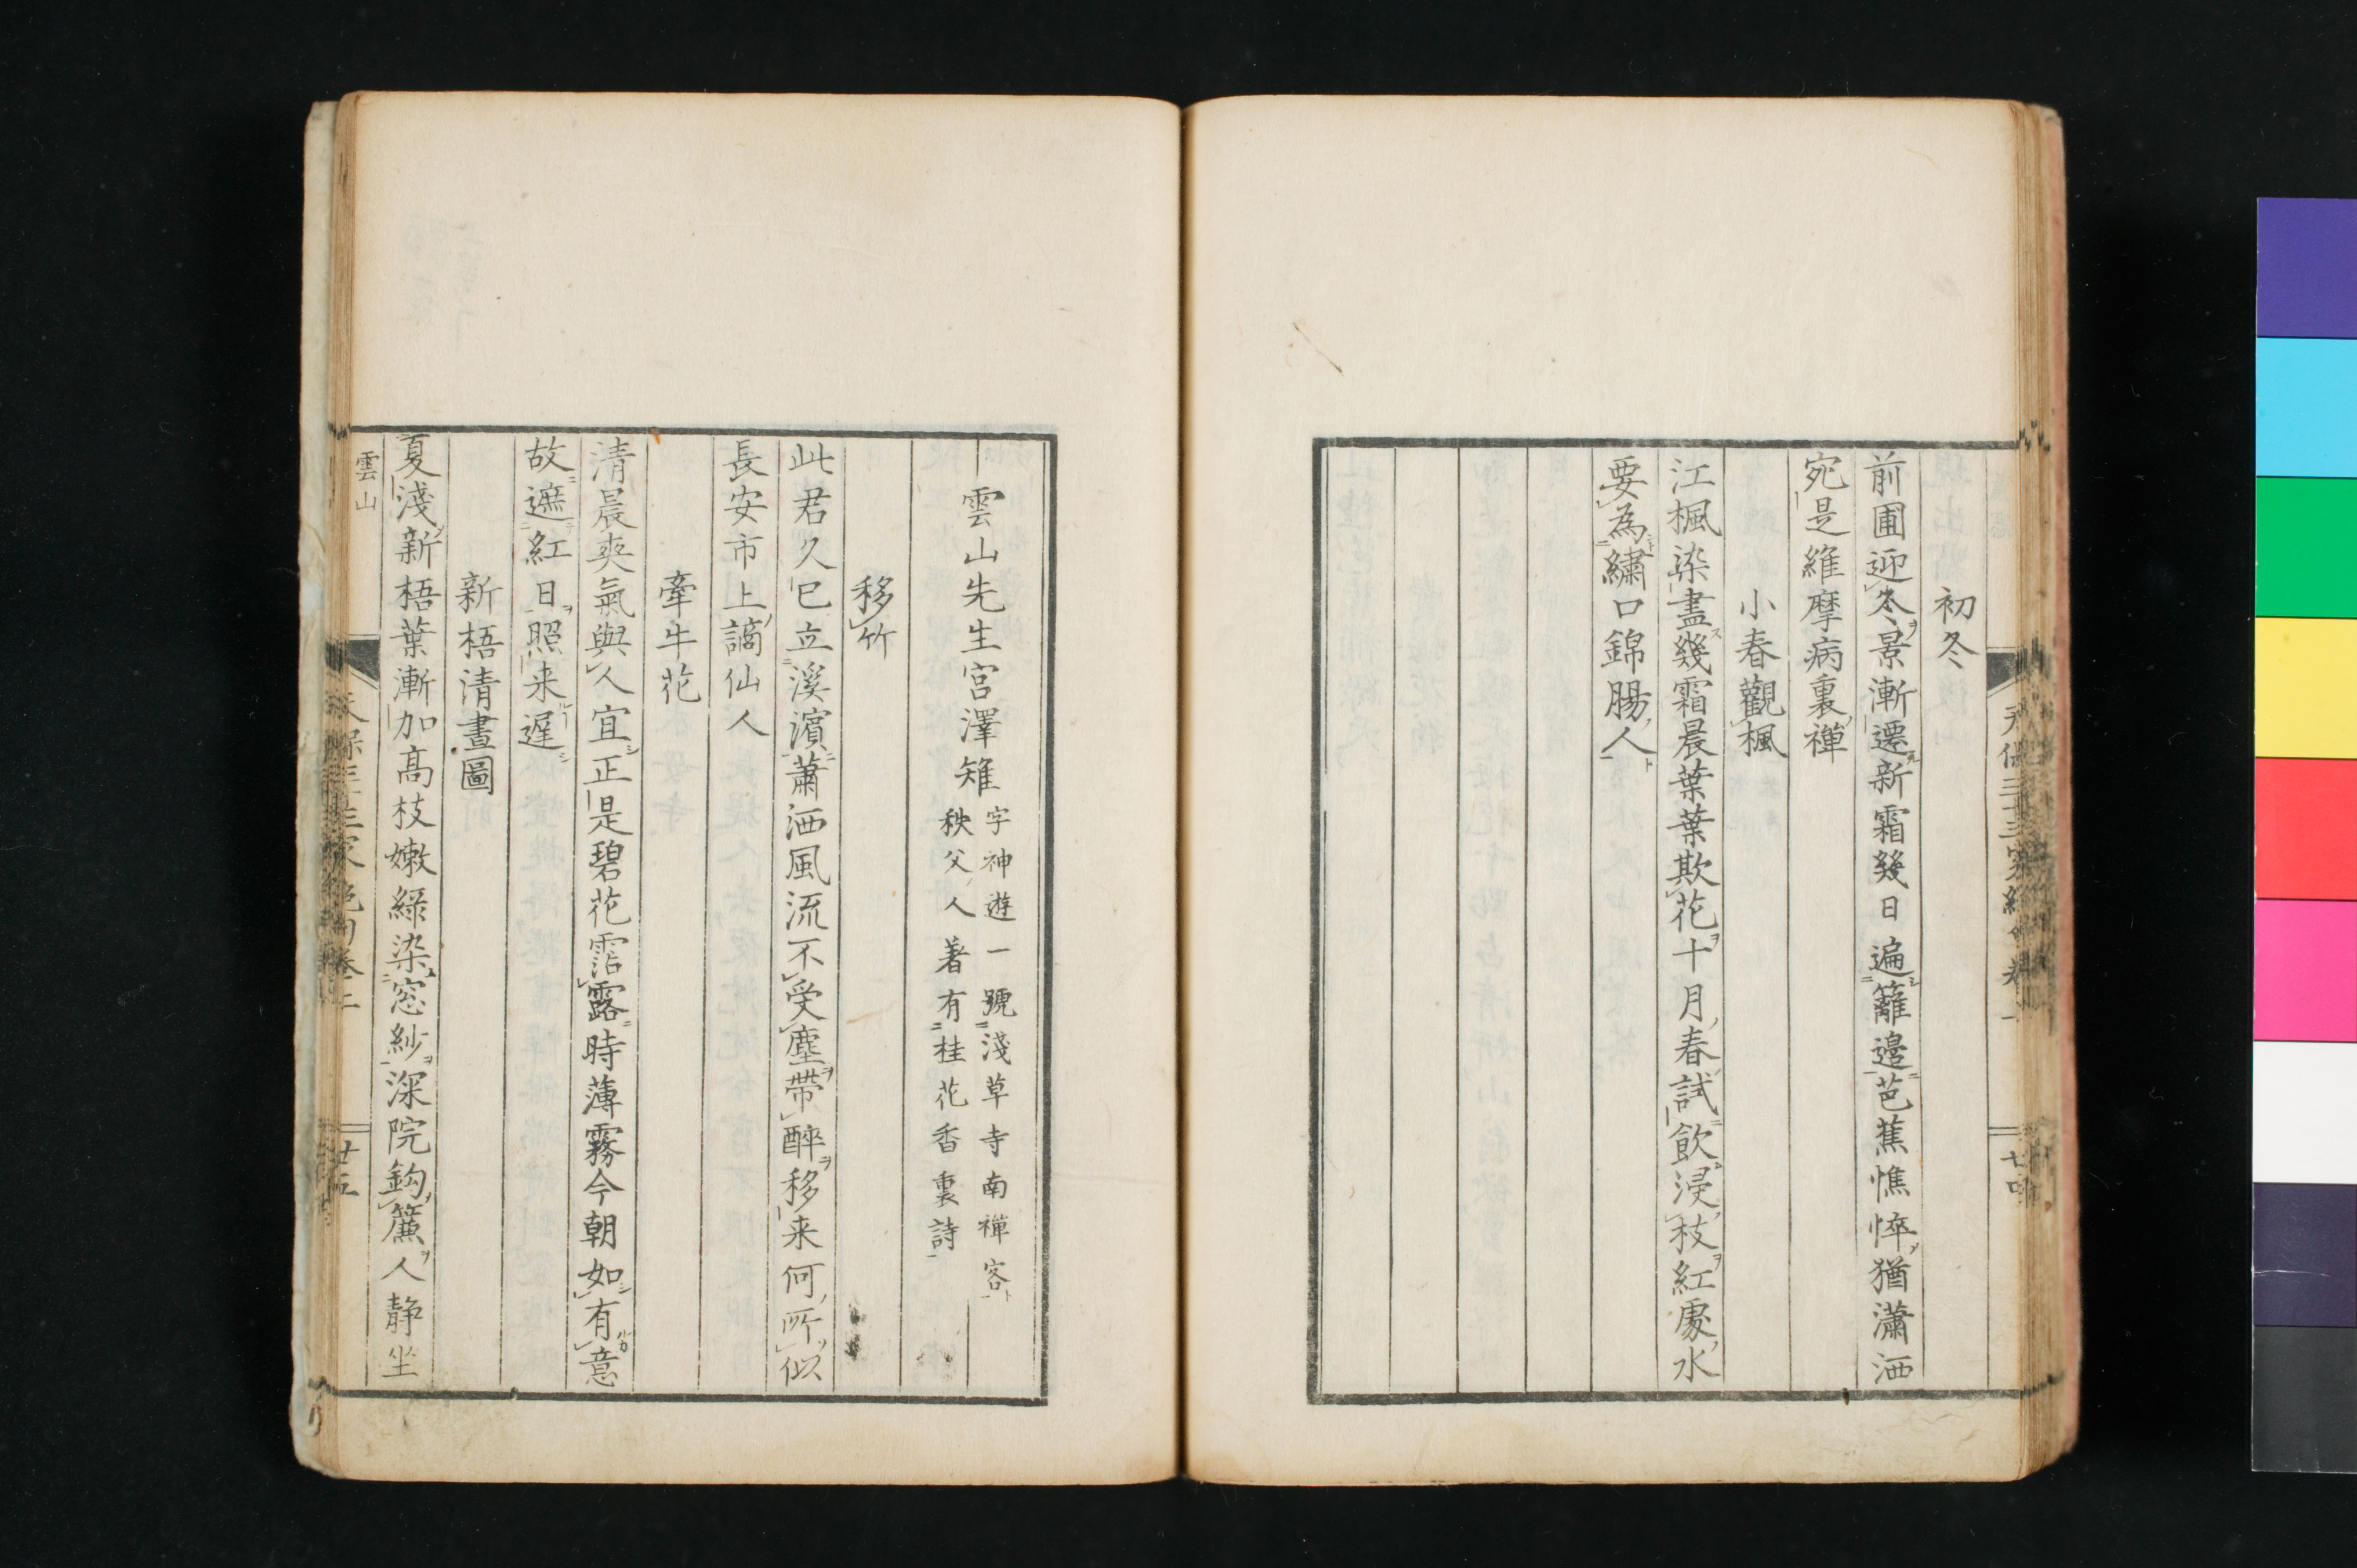 初冬
前圃迎冬景漸遷新霜幾日遍籬邊芭蕉憔悴猶瀟洒
宛是維摩病裏禅
小春觀楓
江楓染盡幾霜晨葉葉欺花十月春試飲浸枝紅處水
要為繡口錦腸人
雲山先生宮澤雉
字神遊一號淺草寺南禅客
秩父人著有桂花香裏詩
移竹
此君久已立溪濵蕭洒風流不受塵帶醉移来何所似
長安市上謫仙人
牽牛花
清晨爽氣與人宜正是碧花霑露時薄霧今朝如有意
故遮紅日照来遲
新梧清晝圖
夏淺新梧葉漸加高枝嫩緑染窓紗深院鈎簾人静坐
雲山